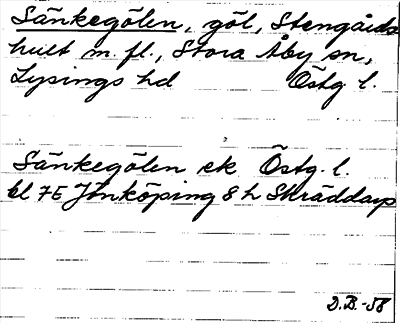 Sänkegölen, göl, Stengårds
hult m. fl., Stora Åby sn,
Lysings hd Östg. l.
Sänkegölen ek Östg. l.
bl 7E Jönköping 8 h Skräddarp
D.B.-58